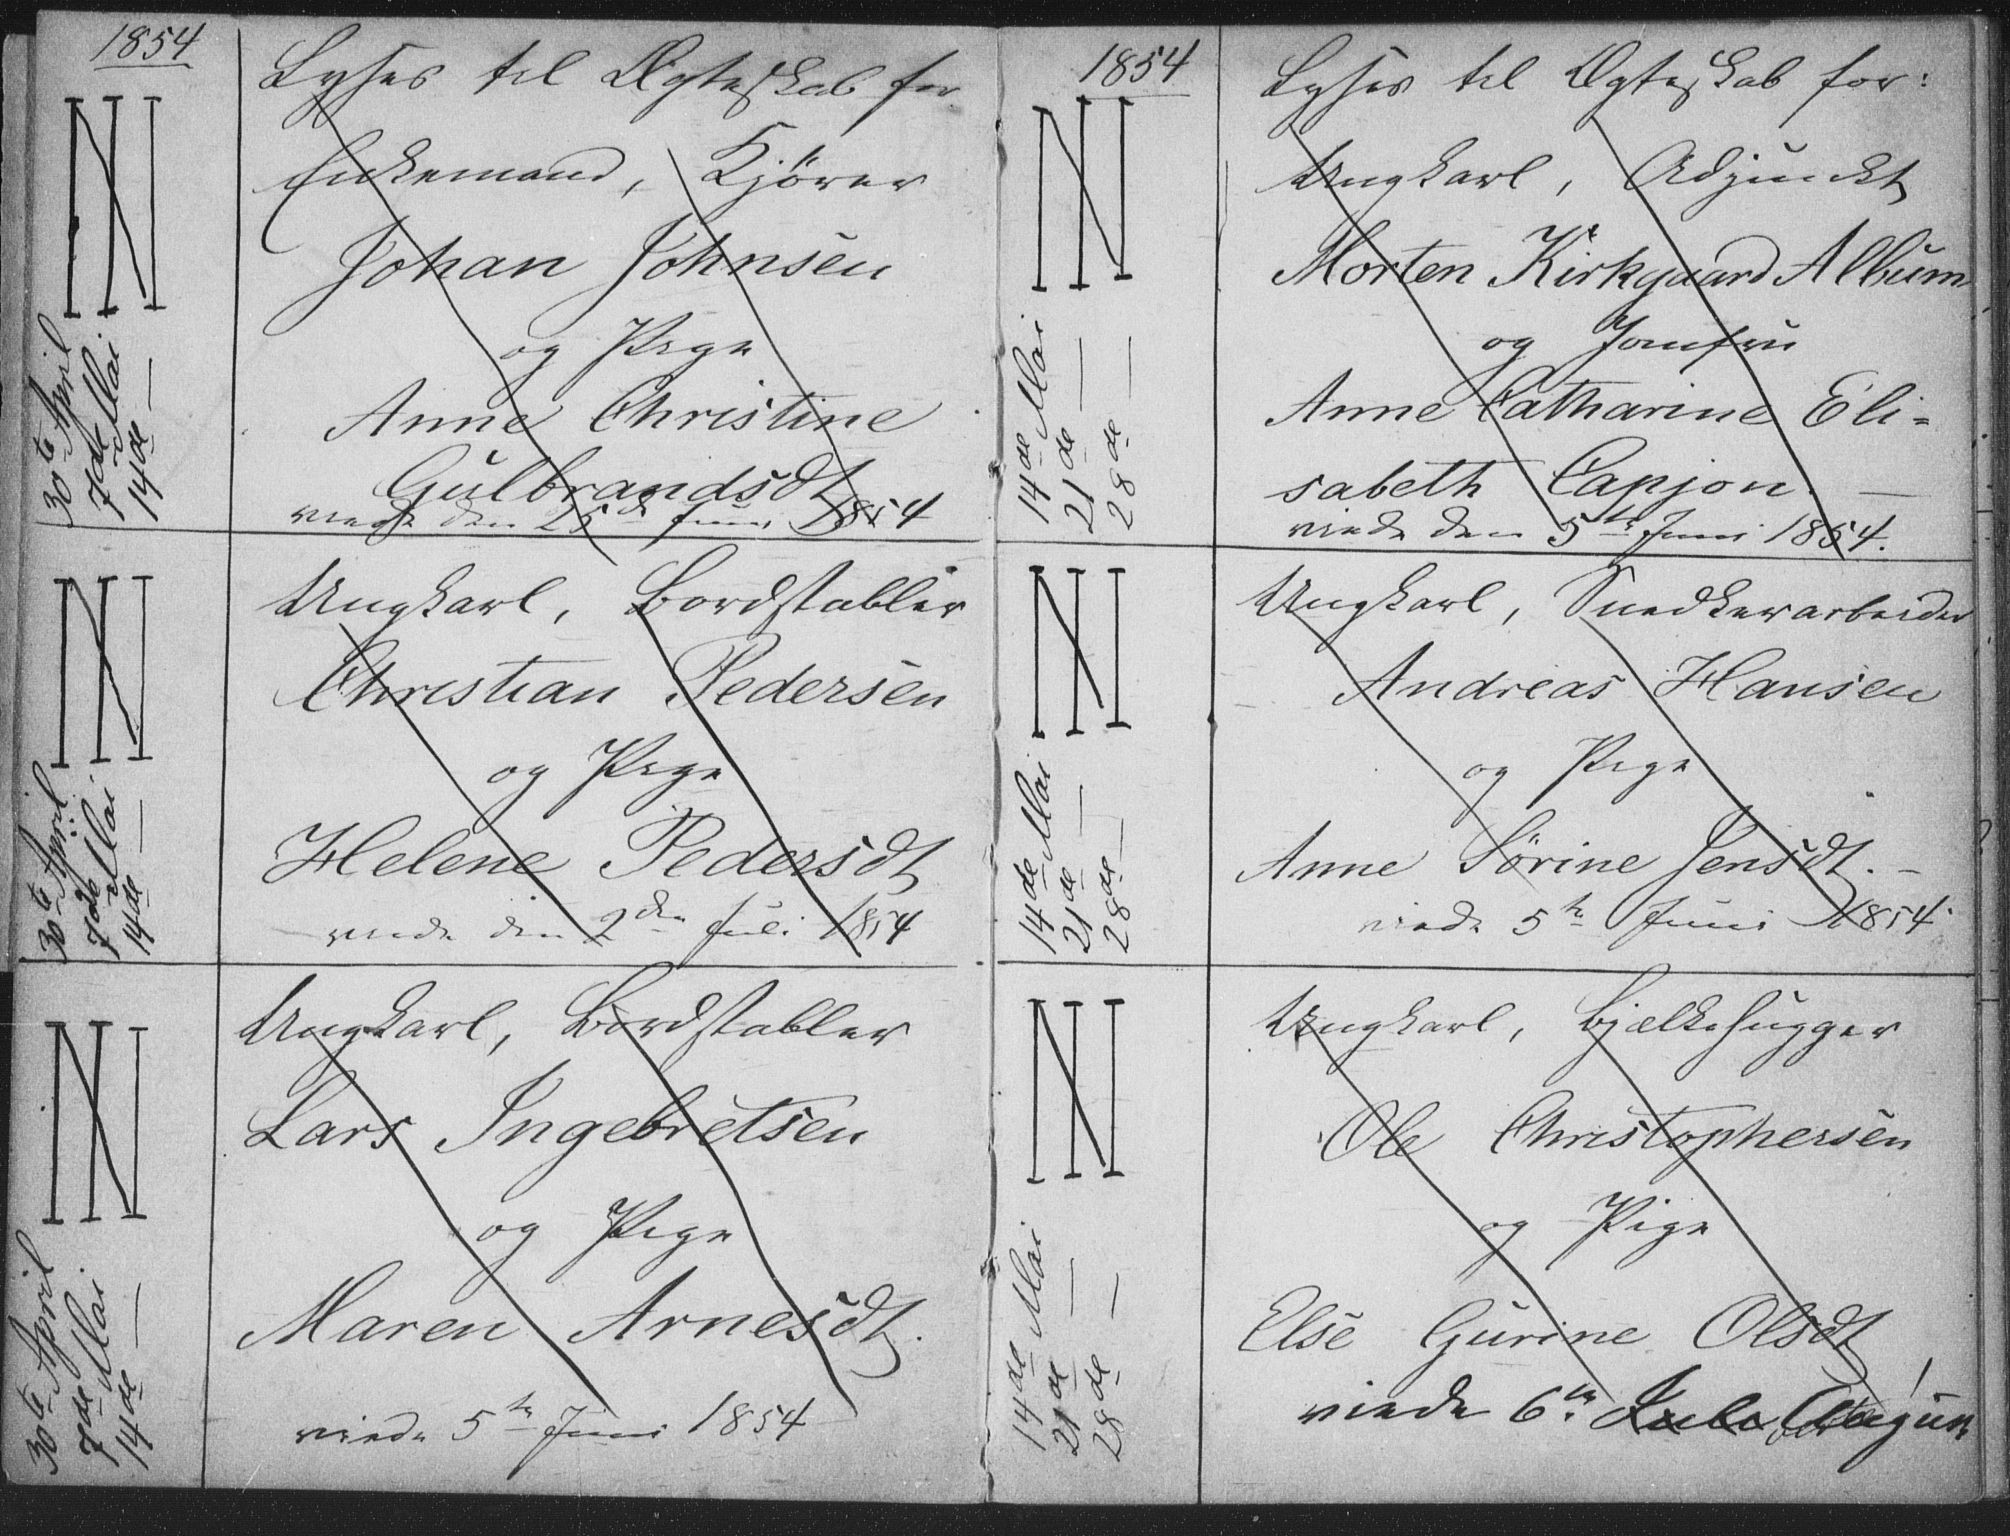 1854
Lyses til Ægteskab for
Enkemand, Kjörer
Johan Johnsen
og Pige
Anne Christine
Gulbrandsdt
viede den 25de Juni 1854
30te April
7de Mai
14de —
Ungkarl, Bordstabler
Christian Pedersen
og Pige
Helene Pedersdt
viede den 2den Juli 1854
30te April
7de Mai
14de —
Ungkarl, Bordstabler
Lars Ingebretsen
og Pige
Maren Arnesdt.
viede 5te Juni 1854
30te April
7de Mai
14de —
1854
Lyses til Ægteskab for:
Ungkarl, Adjunkt
Morten Kirkgaard Album
og Jomfru
Anne Catharine Eli=
sabeth Capjon. —
viede den 5te Juni 1854.
14de Mai
21de —
28de —
Ungkarl, Snedkerarbeider
Andreas Hansen
og Pige
Anne Sørine Jensdt. —
viede 5te Juni 1854.
14de Mai
21de —
28de —
Ungkarl, Bjælkehugger
Ole Christophersen
og Pige
Else Gurine Olsdt
viede 6te
14de Mai
21de —
28de —